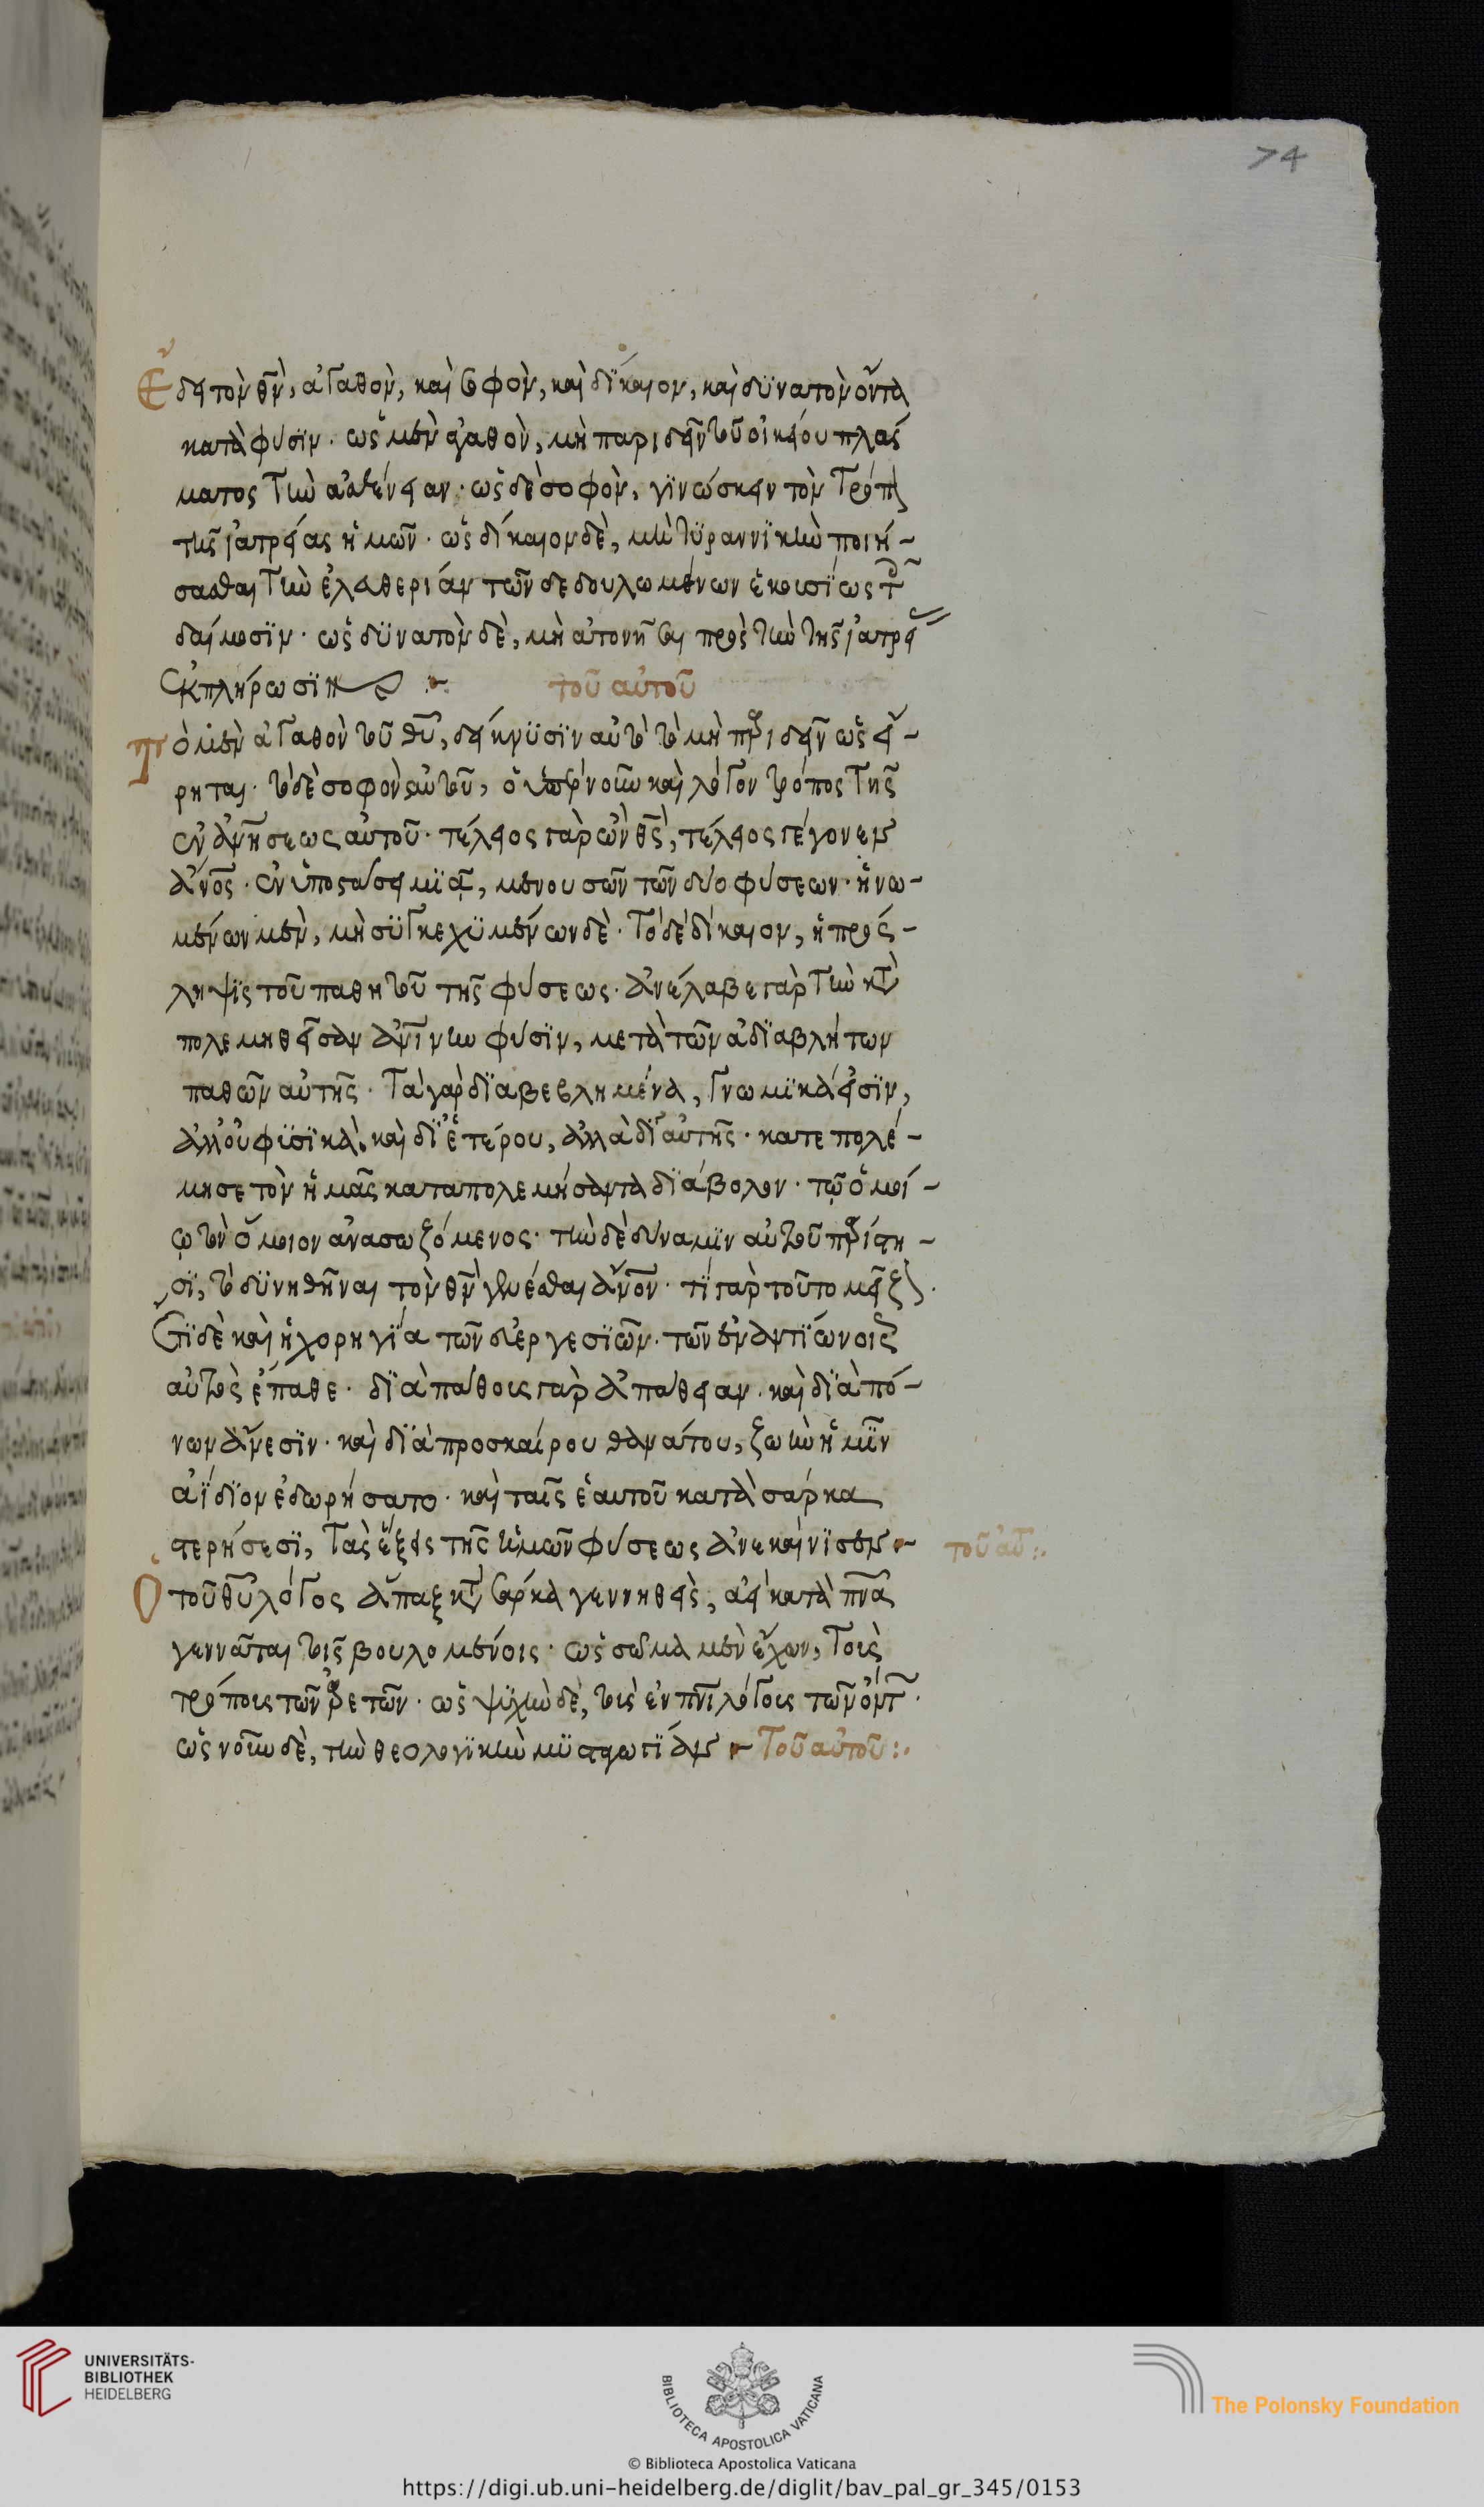 74
Ἔδει τὸν θν̅, ἀγαθὸν, καὶ σοφὸν, καὶ δίκαιον, καὶ δϋνατὸν ὄντα
κατὰ φύσϊν · ὡς μὲν ἀγαθὸν, μὴ παριδεῖν τοῦ οἰκείου πλάσ
ματος τὴν ἀσθένειαν · ὡς δὲ σοφὸν, γϊνώσκειν τὸν τρόπ
τῆς ἰατρείας ἡμῶν · ὡς δίκαιον δὲ, μὴ τϋραννϊκὴν ποιή-
σασθαι τὴν ἐλευθερίαν τῶν δεδουλωμένων ἑκουσίως τ
δαίμοσϊν · ὡς δϋνατὸν δὲ, μὴ ἀτονῆσαι πρὸς τὴν τῆς ἰατρεί
ἐκπλήρωσϊν τοῦ αὐτοῦ
Τὸ μὲν ἀγαθὸν τοῦ θυ̅, δεικνύϋσϊν αὐτὸ τὸ μὴ παριδεῖν ὡς εἴ-
ρηται · τὸ δὲ σοφὸν αὐτοῦ, ὁ ὑπὲρ νοῦν καὶ λόγον τρόπος τῆς
ἐνανθρωπήσεως αὐτοῦ · τέλειος γὰρ ὢν θς̅, τέλειος γέγονεν
ἄνος · ἐν ὑποστάσει μϊᾷ, μενουσῶν τῶν δύο φύσεων · ἡνω-
μένων μὲν, μὴ σϋγκεχϋμένων δὲ · Τὸ δὲ δίκαιον, ἡ πρός-
ληψϊς τοῦ παθητοῦ τῆς φύσεως · ἀνέλαβε γὰρ τὴν κατα
πολεμηθεῖσαν ἀνίνην φύσϊν, μετὰ τῶν ἀδϊαβλήτων
παθῶν αὐτῆς · Τὰ γὰρ δϊαβεβλημένα, γνωμϊκά εἰσϊν,
ἀλλ' οὐ φϋσϊκὰ. καὶ δϊ' ἑτέρου, ἀλλὰ δϊ' αὐτῆς · κατεπολέ-
μησε τὸν ἡμᾶς καταπολεμήσαντα δϊάβολον · τῷ ὁμοί-
ῳ τὸν ὅμοιον ἀνασωζόμενος · τὴν δὲ δύναμϊν αὐτοῦ παρίστη-
σϊ, τὸ δϋνηθῆναι τὸν θν̅ γενέσθαι ἄνον · τί γὰρ τοῦτο μεῖζ.
Ἔτϊ δὲ καὶ ἡ χορηγία τῶν εὐεργεσϊῶν · τῶν ἐναντϊων οἷς
αὐτὸς ἔπαθε · δϊὰ πάθους γὰρ ἀπάθειαν · καὶ δϊὰ πό-
νων ἄνεσϊν · καὶ δϊὰ προσκαίρου θανάτου, ζωὴν ἡμῖν
ἀΐδϊον ἐδωρήσατο · καὶ ταῖς ἑαυτοῦ κατὰ σάρκα
στερήσεσϊ, τὰς ἕξεις τῆς ἡμῶν φύσεως ἀνεκαίνϊσεν τοῦ αὐ :.
Ὁ τοῦ θυ̅ λόγος ἅπαξ κατὰ σάρκα γεννηθεὶς, ἀεὶ κατὰ πνα̅
γεννᾶται τοῖς βουλομένοις · ὡς σῶμα μὲν ἔχων, τοὺς
τρόπους τῶν ἀρετῶν · ὡς ψϋχὴν δὲ, τοὺς ἐν πνι̅ λόγους τῶν ὄντ ·
ὡς νοῦν δὲ, τὴν θεολογϊκὴν μϋσταγωγϊαν Τοῦ αὐτοῦ :.
UNIVERSITÄTS-
BIBLIOTHEK
HEIDELBERG
BIBLIOTECA APOSTOLICA VATICANA
The Polonsky Foundation
© Biblioteca Apostolica Vaticana
https://digi.ub.uni-heidelberg.de/diglit/bav_pal_gr_345/0153